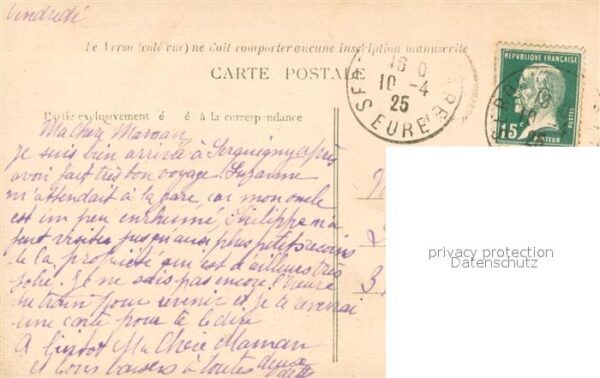 Vendredi
Le Verso (côté vue) ne doit comporter aucune inscription manuscrite
CARTE POSTALE
Partie exclusivement é é à la correspondance
16
10-4
25
EURE
RÉPUBLIQUE FRANÇAISE
15
POSTES
PASTEUR
Ma chère Maman
Je suis bien arrivée à Serquigny après
avoir fait très bon voyage. Suzanne
m'attendait à la gare, car mon oncle
est un peu enrhumé, Philippe m'a
fait visiter jusqu'aux plus petits recoins
de la propriété qui est d'ailleurs très
jolie. Je ne sais pas encore l'heure
du train pour revenir et je t'enverrai
une carte pour te le dire
A bientôt Ma Chère Maman
et bons baisers à toutes deux
privacy protection
Datenschutz